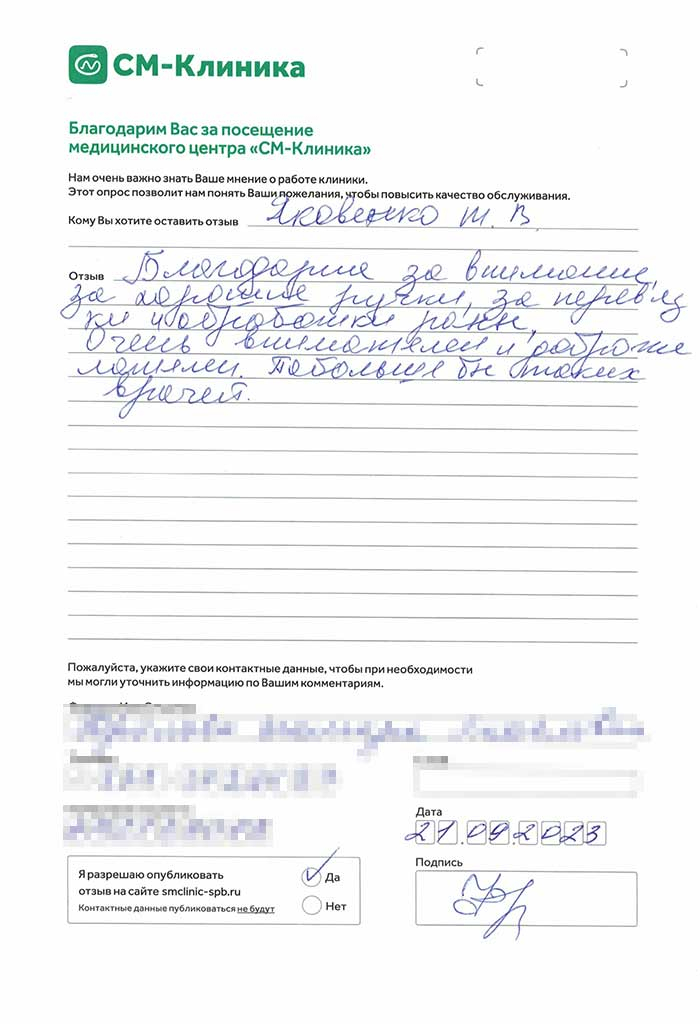 СМ-Клиника
Благодарим Вас за посещение
медицинского центра «СМ-Клиника»
Нам очень важно знать Ваше мнение о работе клиники.
Этот опрос позволит нам понять Ваши пожелания, чтобы повысить качество обслуживания.
Кому Вы хотите оставить отзыв Яковенко Т. В.
Отзыв Благодарит за внимание,
за хорошие ручки, за перевяз
ки и обработки ранн,
Очень внимателен и доброже
лателен. Побольше бы таких
врачей.
Пожалуйста, укажите свои контактные данные, чтобы при необходимости
мы могли уточнить информацию по Вашим комментариям.
Дата
21.09.2023
Я разрешаю опубликовать
отзыв на сайте smclinic-spb.ru
Контактные данные публиковаться не будут
Да
Нет
Подпись